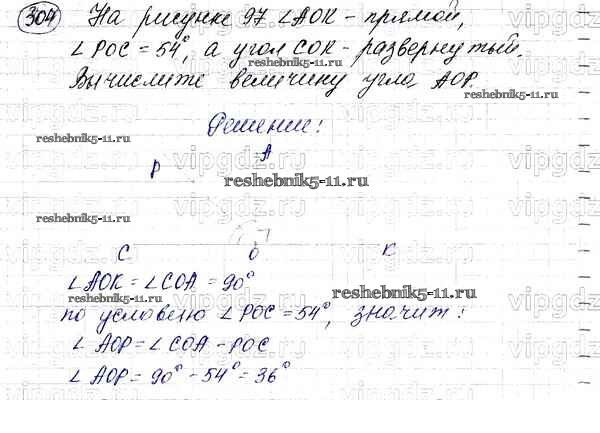 304 На рисунке 97 ∠AOK - прямой,
∠POC = 54°, а угол COK - развернутый.
Вычислите величину угла AOP.
Решение:
P A
C O K
∠AOK = ∠COA = 90°
по условию ∠POC = 54°, значит:
∠AOP = ∠COA - POC
∠AOP = 90° - 54° = 36°
reshebnik5-11.ru
reshebnik5-11.ru
reshebnik5-11.ru
reshebnik5-11.ru
reshebnik5-11.ru
reshebnik5-11.ru
vipgdz.ru
vipgdz.ru
vipgdz.ru
vipgdz.ru
vipgdz.ru
vipgdz.ru